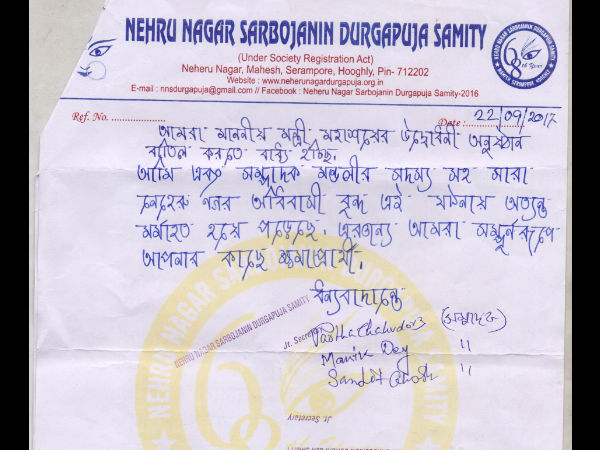 NEHRU NAGAR SARBOJANIN DURGAPUJA SAMITY
(Under Society Registration Act)
Neheru Nagar, Mahesh, Serampore, Hooghly, Pin- 712202
Website : www.neherunagardurgapuja.org.in
E-mail : nnsdurgapuja@gmail.com // Facebook : Neheru Nagar Sarbojanin Durgapuja Samity-2016
Ref. No. ..................... Date : 22/09/2017
আমরা মাননীয় মন্ত্রী মহাশয়ের উদ্বোধনী অনুষ্ঠান
বাতিল করতে বাধ্য হচ্ছি.
আমি এবং সম্পাদক মন্ডলীর সদস্য সহ সারা
নেহেরু নগর অধিবাসী বৃন্দ এই ঘটনায় অত্যন্ত
মর্মাহত হয়ে পড়েছে. এরজন্য আমরা সম্পূর্ন রূপে
আপনার কাছে ক্ষমাপ্রার্থী.
ধন্যবাদান্তে
NEHRU NAGAR SARBOJANIN DURGAPUJA SAMITY
Jt. Secretary
Manik Dey "
Jt. Secretary